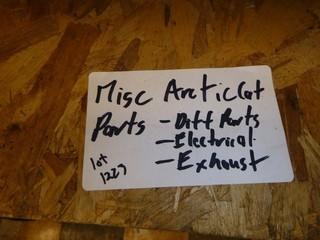 Misc Arctic Cat
Parts - Diff Parts
- Electrical
- Exhaust
lot
1229